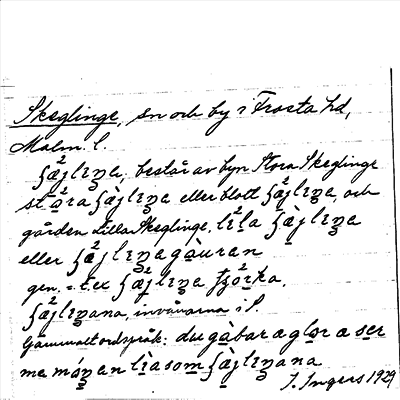 Skeglinge, sn och by i Frosta hd,
Malm. l.
ʃæ̀jlıŋa, består av byn Stora Skeglinge
stɑ̀ra ʃæ̀jlıŋa eller blott ʃæ̀jlıŋa, och
gården Lilla Skeglinge, lìla ʃæ̀jlıŋa
eller ʃæ̀jlıŋagɑ̀uran
gen. = t.ex. ʃæ̀jlıŋa
ʃæ̀jlıŋana, invånarna i S.
Gammalt ordspråk: du gàbar a glor a ser
me mọ́ŋen lìa som ʃæ̀jlıŋana
I. Ingers 1929